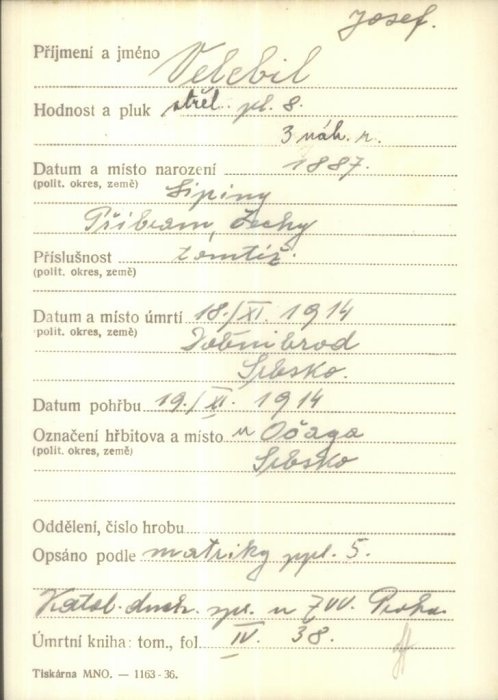 Josef.
Příjmení a jméno Velebil
Hodnost a pluk střel. pl. 8.
3 náh. r.
Datum a místo narození 1887.
(polit. okres, země) Lipiny
Příbram, Čechy
Příslušnost tamtéž.
(polit. okres, země)
Datum a místo úmrtí 18./XI. 1914
(polit. okres, země)
Srbsko.
Datum pohřbu 19./XI. 1914
Označení hřbitova a místo u Očaga
(polit. okres, země) Srbsko
Oddělení, číslo hrobu
Opsáno podle matriky ppl. 5.
Katol. duch. spr. u ZVV. Praha.
Úmrtní kniha: tom., fol. IV. 38.
Tiskárna MNO. — 1163-36.